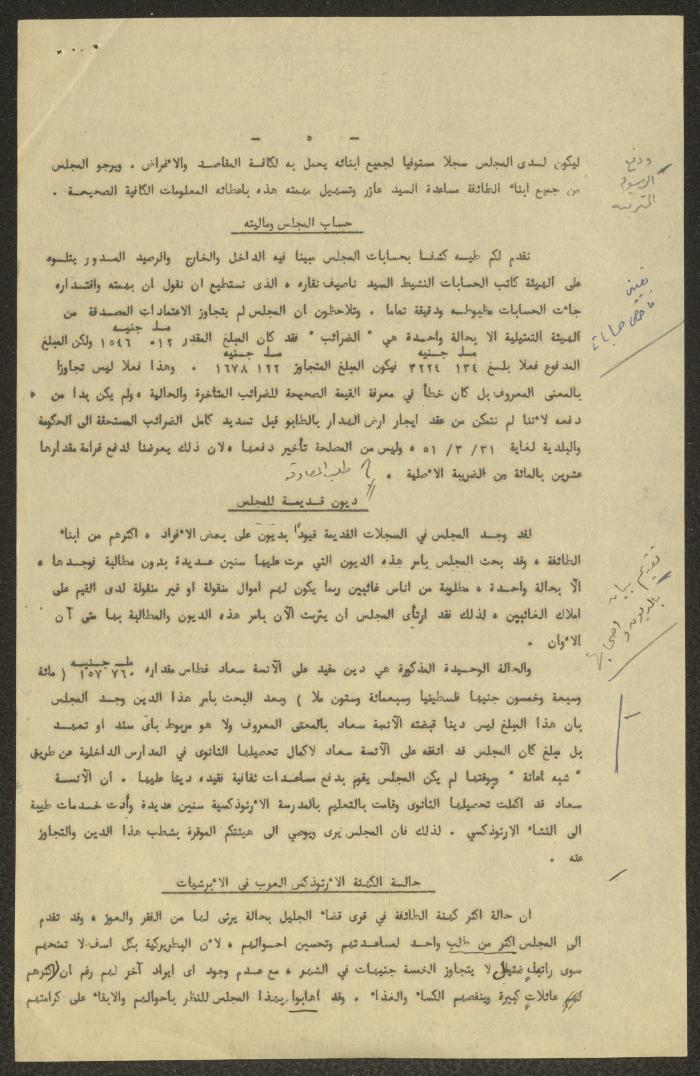 - ٥ -
ليكون لدى المجلس سجلا مستوفيا لجميع ابنائه يعمل به لكافة المقاصد والاغراض . ويرجو المجلس
من جميع ابناء الطائفة مساعدة السيد عازر وتسهيل مهمته هذه باعطائه المعلومات الكافية الصحيحة .
ودفع
الرسوم
المترتبه
حساب المجلس وماليته
نقدم لكم طيه كشفا بحسابات المجلس مبينا فيه الداخل والخارج والرصيد المدور يتلوه
على الهيئة كاتب الحسابات النشيط السيد ناصيف نقاره ، الذى نستطيع ان نقول ان بهمته واقتداره
جاءت الحسابات مضبوطه ودقيقة تماما . وتلاحظون ان المجلس لم يتجاوز الاعتمادات المصدقة من
تعيين
فاحص حسابات
مل جنيه
الهيئة التمثيلية الا بحالة واحدة هي " الضرائب " فقد كان المبلغ المقدر ٥١٢ ١٥٤٦ ولكن المبلغ
مل جنيه مل جنيه
المدفوع فعلا بلغ ١٣٤ ٣٢٢٤ فيكون المبلغ المتجاوز ١٢٢ ١٦٧٨ . وهذا فعلا ليس تجاوزا
بالمعنى المعروف بل كان خطأ في معرفة القيمة الصحيحة للضرائب المتأخرة والحالية ، ولم يكن بدا من
دفعه لاننا لم نتمكن من عقد ايجار ارض الهدار بالطابو قبل تسديد كامل الضرائب المستحقة الى الحكومة
والبلدية لغاية ٣١/ ٣/ ٥١ ، وليس من المصلحة تأخير دفعها ، لان ذلك يعرضنا لدفع غرامة مقدارها
عشرين بالمائة من الضريبة الاصلية . طلب المصادقه
ديون قديمة للمجلس
لقد وجد المجلس في السجلات القديمة قيودا بديون على بعض الافراد ، اكثرهم من ابناء
الطائفة ، وقد بحث المجلس بامر هذه الديون التي مرت عليها سنين عديدة بدون مطالبة فوجدها ،
الا بحالة واحدة ، مطلوبة من اناس غائبين ربما يكون لهم اموال منقولة او غير منقولة لدى القيم على
املاك الغائبين ، لذلك فقد ارتأى المجلس ان يتريث الآن بامر هذه الديون والمطالبة بها متى آن
الاوان .
تقديم بيان
بالديون و اصحابها
مل جنيه
والحالة الوحيدة المذكورة هي دين مقيد على الآنسة سعاد غطاس مقداره ٧٦٠ ١٥٧ ( مائة
وسبعة وخمسون جنيها فلسطينيا وسبعمائة وستون ملا ) وبعد البحث بامر هذا الدين وجد المجلس
بان هذا المبلغ ليس دينا قبضته الآنسة سعاد بالمعنى المعروف ولا هو مربوط بأى سند او تعهد
بل مبلغ كان المجلس قد انفقه على الآنسة سعاد لاكمال تحصيلها الثانوى في المدارس الداخلية عن طريق
" شبه اعانة " وبوقتها لم يكن المجلس يقوم بدفع مساعدات ثقافية فقيده دينا عليها . ان الآنسة
سعاد قد اكملت تحصيلها الثانوى وقامت بالتعليم بالمدرسة الارثوذكسية سنين عديدة وأدت خدمات طيبة
الى النشء الارثوذكسي . لذلك فان المجلس يرى ويوصي الى هيئتكم الموقرة بشطب هذا الدين والتجاوز
عنه .
حالة الكهنة الارثوذكس العرب في الابرشيات
ان حالة اكثر كهنة الطائفة في قرى قضاء الجليل بحالة يرثى لها من الفقر والعوز ، وقد تقدم
الى المجلس اكثر من طلب واحد لمساعدتهم وتحسين احوالهم ، لان البطريركية بكل اسف لا تمنحهم
سوى راتب ضئيل لا يتجاوز الخمسة جنيهات في الشهر ، مع عدم وجود اى ايراد آخر لهم رغم ان اكثرهم
عائلات كبيرة وينقصهم الكساء والغذاء . وقد اهابوا بهذا المجلس للنظر باحوالهم والابقاء على كرامتهم